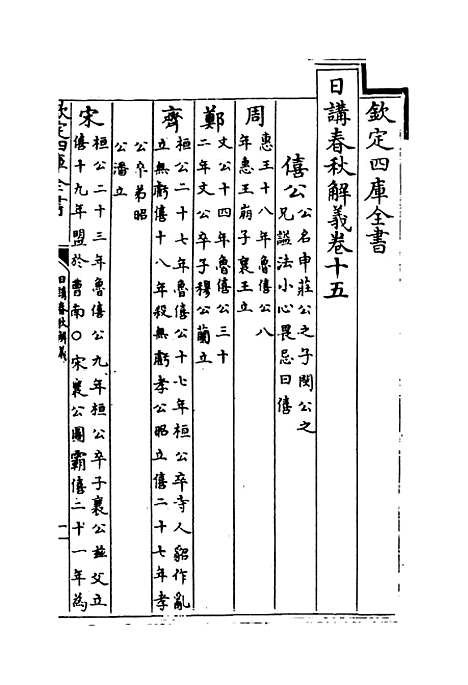 欽定四庫全書
日講春秋解義卷十五
僖公
公名申莊公之子閔公之
兄謚法小心畏忌曰僖
周
惠王十八年魯僖公八
年惠王崩子襄王立
鄭
文公十四年魯僖公三十
二年文公卒子穆公蘭立
齊
桓公二十七年魯僖公十七年桓公卒寺人貂作亂
立無虧僖十八年殺無虧孝公昭立僖二十七年孝
公卒弟昭
公潘立
宋
桓公二十三年魯僖公九年桓公卒子襄公茲父立
僖十九年盟於曹南○宋襄公圖霸僖二十一年為
欽定四庫全書
日講春秋解義
一